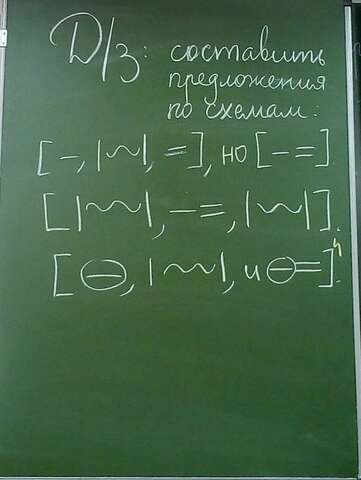 Д/з: составить
предложения
по схемам:
[–, |~|, =], но [– =].
[|~~|, – =, |~|].
[⊖, |~~|, и ⊖=].
ч